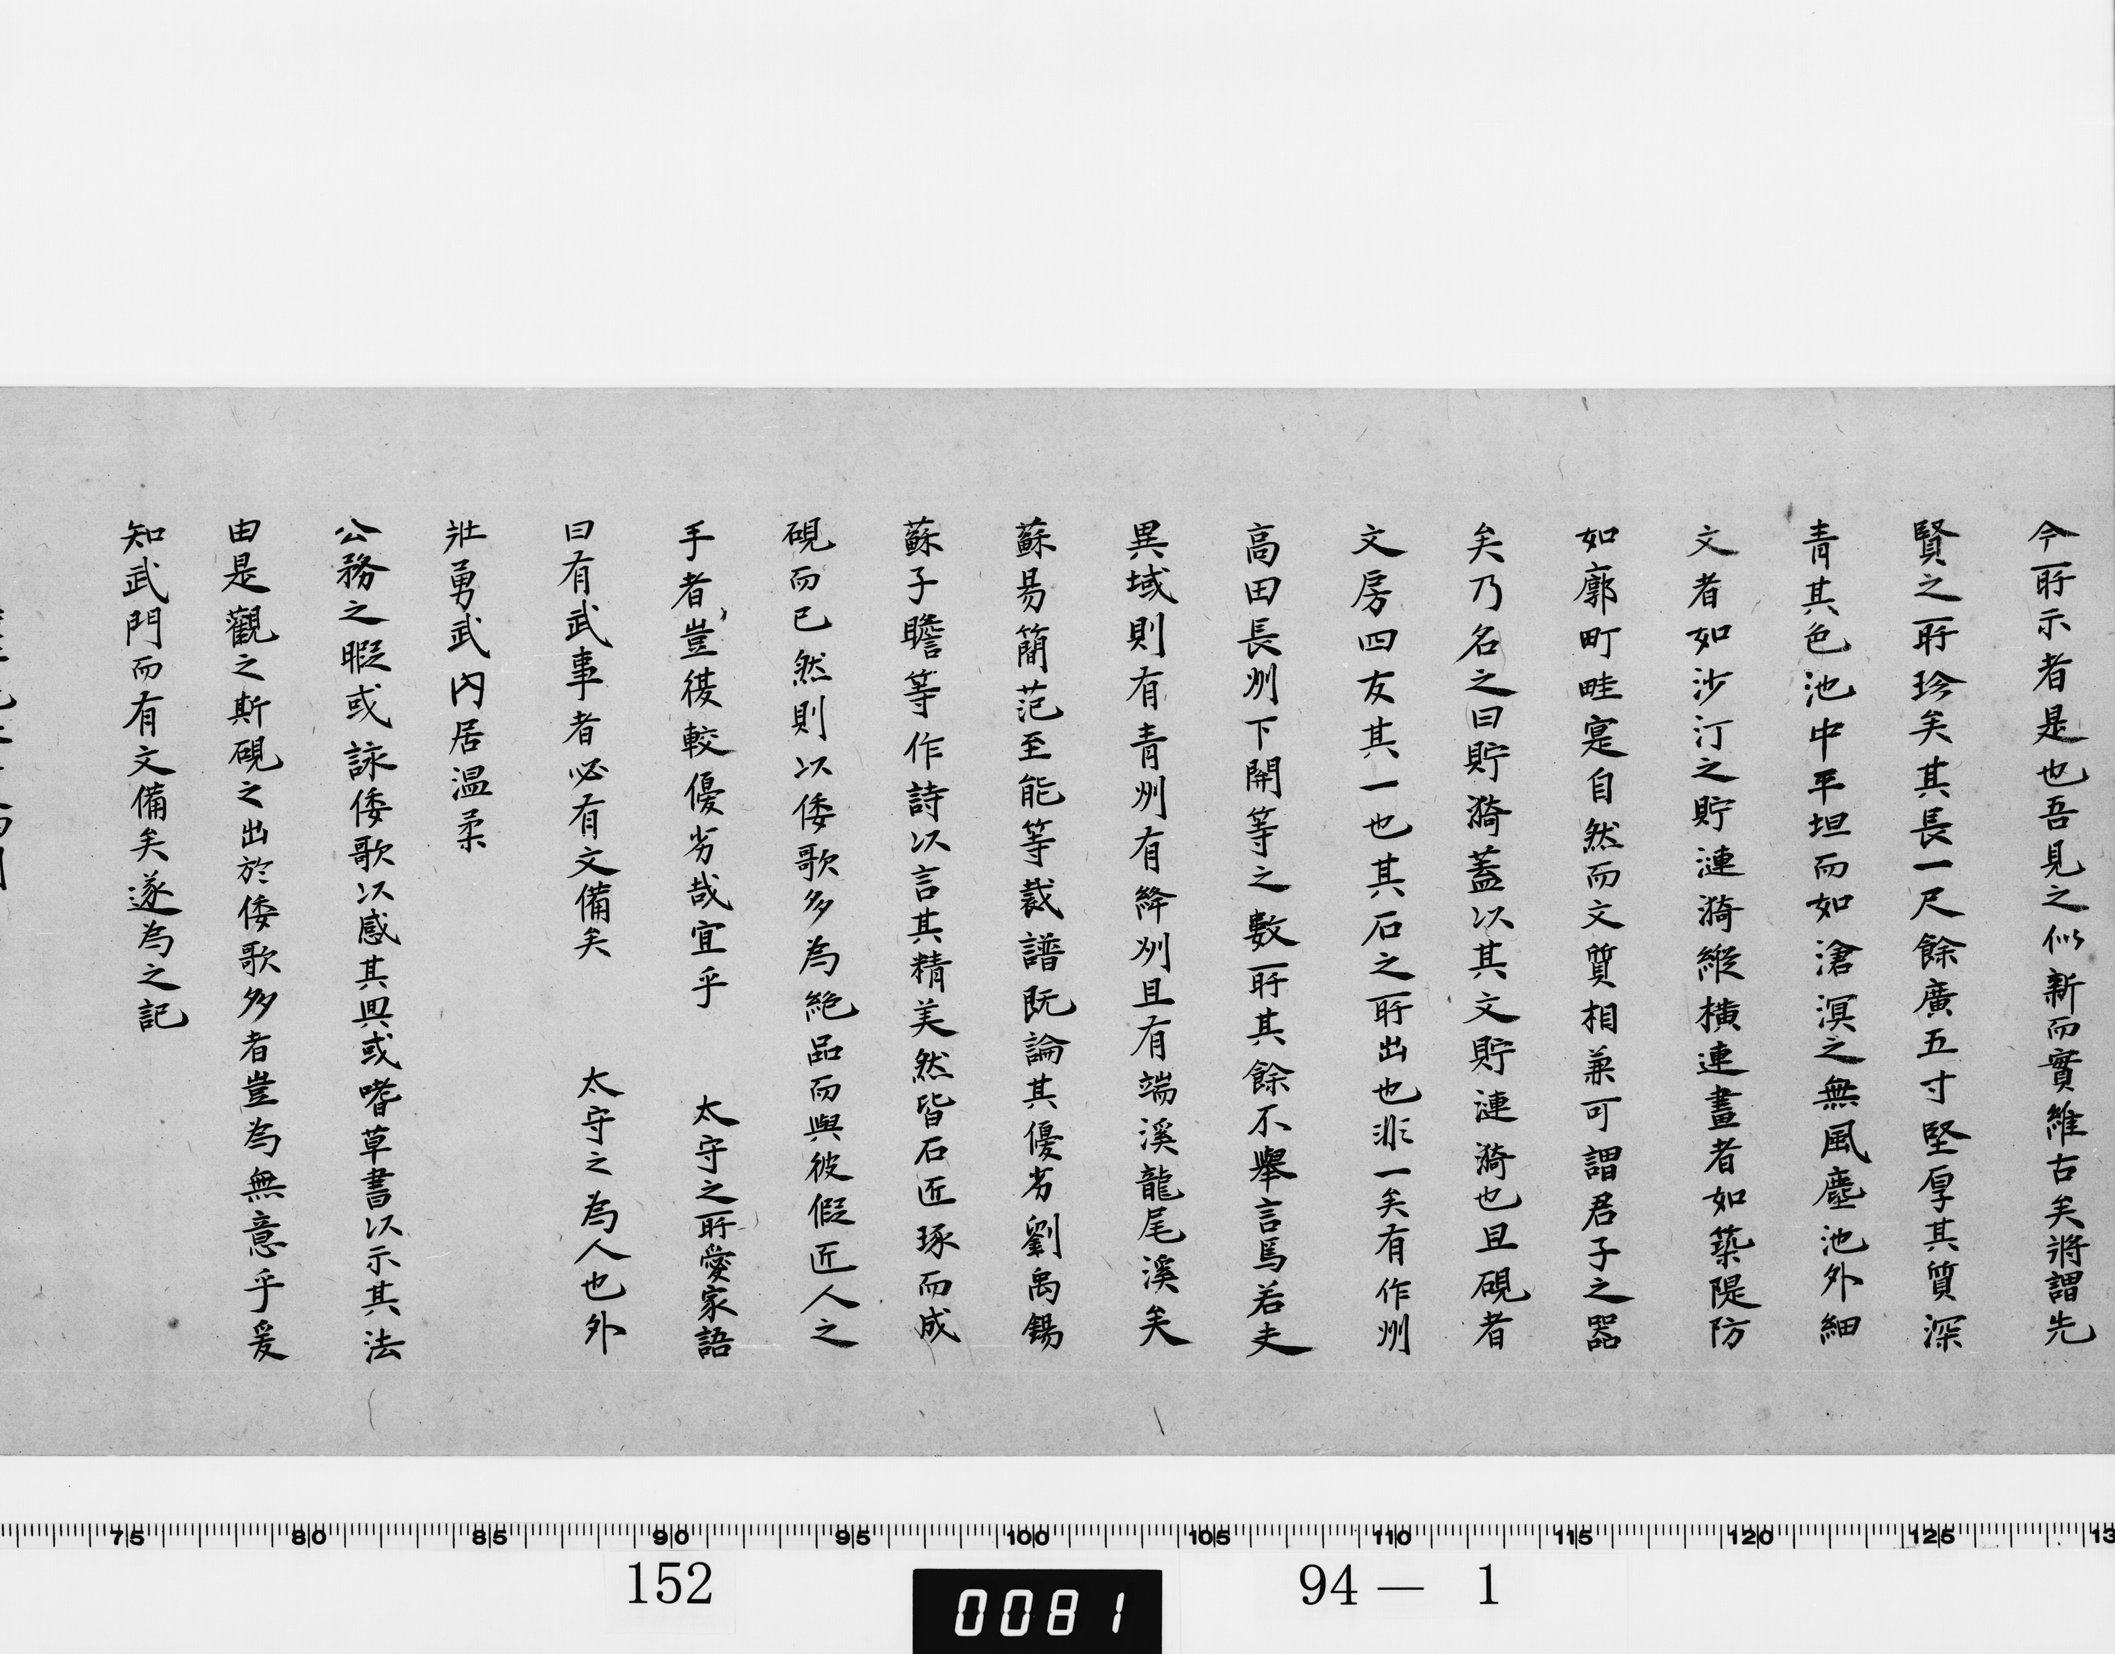 今所示者是也吾見之似新而實維古矣將謂先
賢之所珍矣其長一尺餘廣五寸堅厚其質深
青其色池中平坦而如滄溟之無風塵池外細
文者如沙汀之貯漣漪縱橫連畫者如築隄防
如廓町畦寔自然而文質相兼可謂君子之器
矣乃名之曰貯漪蓋以其文貯漣漪也且硯者
文房四友其一也其石之所出也非一矣有作州
高田長州下関等之數所其餘不擧言焉若夫
異域則有青州有絳州且有端溪龍尾溪矣
蘇易簡范至能等裁譜既論其優劣劉禹錫
蘇子瞻等作詩以言其精美然皆石匠琢而成
硯而已然則以倭歌多為絶品而與彼假匠人之
手者豈復較優劣哉宜乎 太守之所愛家語
曰有武事者必有文備矣 太守之為人也外
壯勇武内居温柔
公務之暇或詠倭歌以感其興或嗜草書以示其法
由是觀之斯硯之出於倭歌多者豈為無意乎爰
知武門而有文備矣遂為之記
75 80 85 90 95 100 105 110 115 120 125 13
152 0081 94— 1